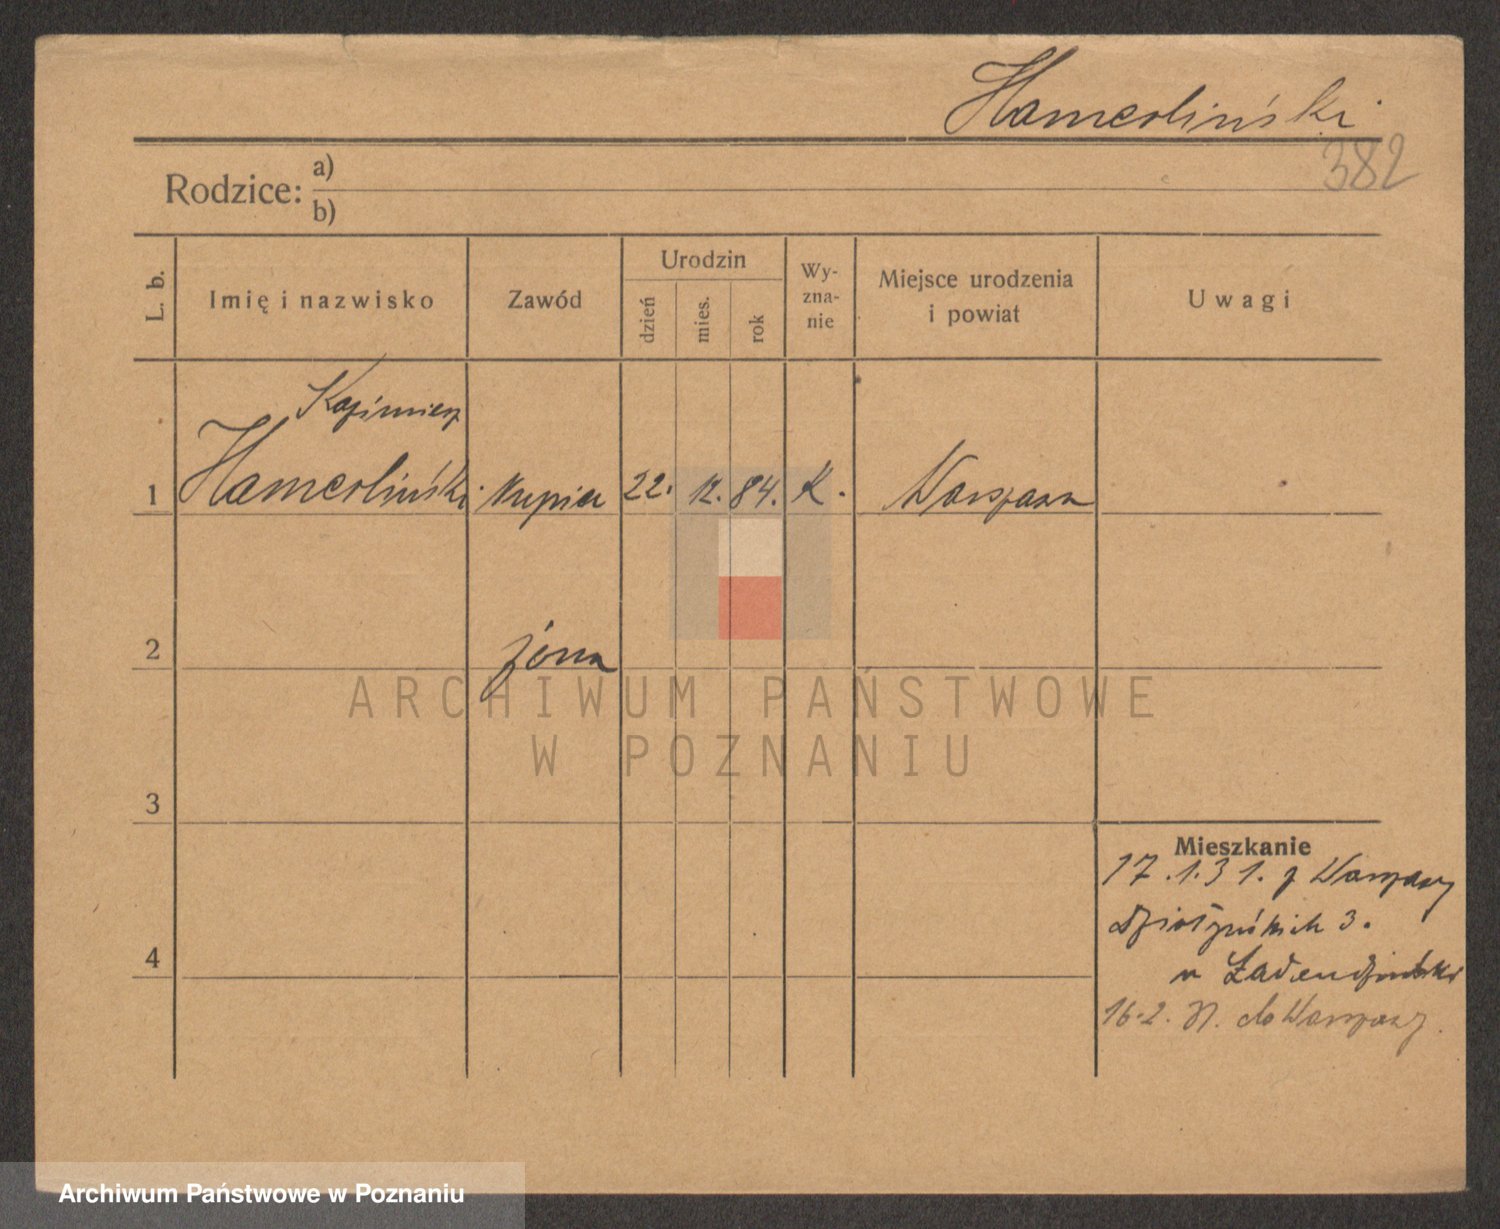 Hamerliński
382
Rodzice: a)
b)
L. b.
Imię i nazwisko
Zawód
Urodzin
dzień
mies.
rok
Wy-
zna-
nie
Miejsce urodzenia
i powiat
Uwagi
Kazimierz
1 Hamerliński kupiec 22. 12. 84. K. Warszawa
2 żona
3
4
Mieszkanie
17.1.31. z Warszawy
Działyńskich 3.
u
16.2. do Warszawy.
ARCHIWUM PAŃSTWOWE
W POZNANIU
Archiwum Państwowe w Poznaniu